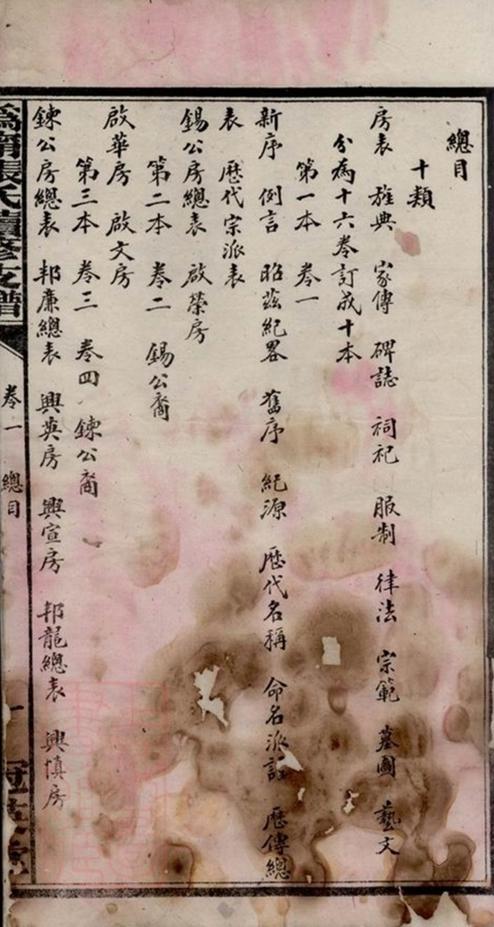 總目
十類
房表 旌典 家傳 碑誌 祠祀 服制 律法 宗範 墓圖 藝文
分為十六卷訂成十本
第一本 卷一
新序 例言 昭茲紀畧 舊序 紀源 歷代名稱 命名派 歷傳總
表 歷代宗派表
錫公房總表 啟榮房
第二本 卷二 錫公裔
啟華房 啟文房
第三本 卷三 卷四 鍊公裔
鍊公房總表 邦廉總表 興英房 興宣房 邦龍總表 興慎房
為南張氏續修支譜 卷一 總目